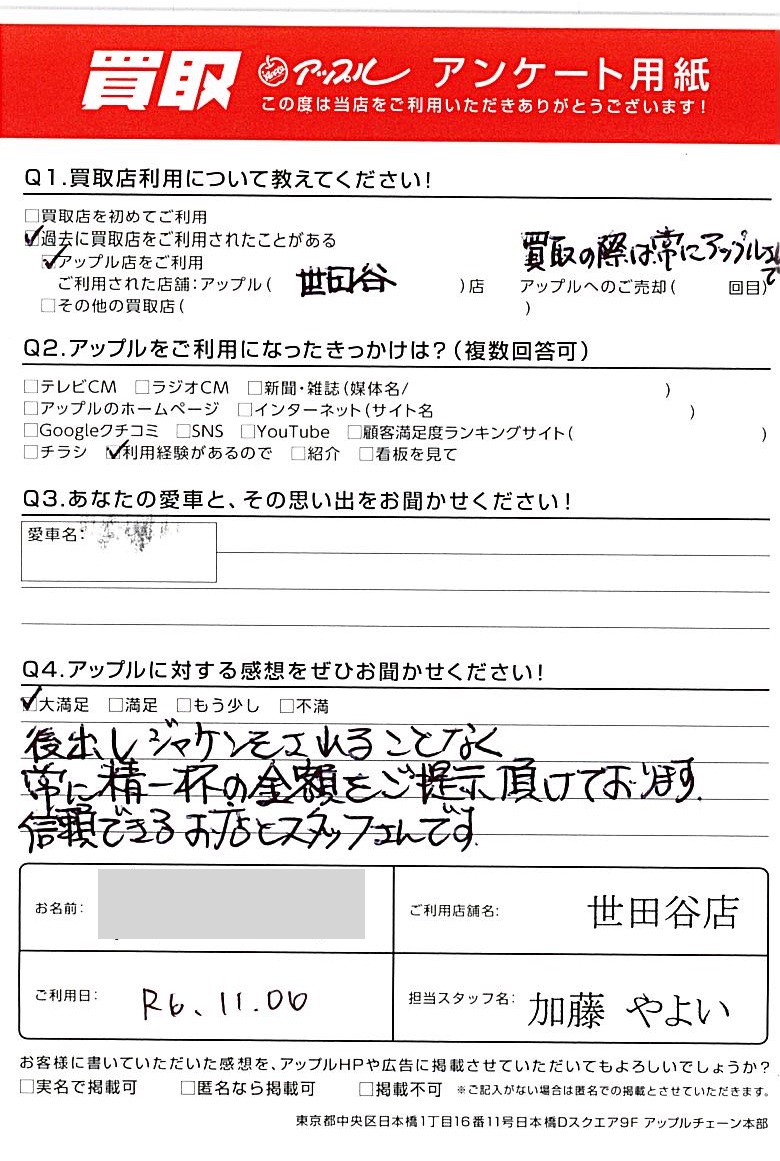 買取 アップル アンケート用紙
この度は当店をご利用いただきありがとうございます！
Q1.買取店利用について教えてください！
□買取店を初めてご利用
☑過去に買取店をご利用されたことがある
☑アップル店をご利用
買取の際は常にアップルさんで
ご利用された店舗：アップル（ 世田谷 ）店 アップルへのご売却（ 回目）
□その他の買取店（ ）
Q2.アップルをご利用になったきっかけは？（複数回答可）
□テレビCM □ラジオCM □新聞・雑誌（媒体名/ ）
□アップルのホームページ □インターネット（サイト名 ）
□Googleクチコミ □SNS □YouTube □顧客満足度ランキングサイト（ ）
□チラシ ☑利用経験があるので □紹介 □看板を見て
Q3.あなたの愛車と、その思い出をお聞かせください！
愛車名：
Q4.アップルに対する感想をぜひお聞かせください！
☑大満足 □満足 □もう少し □不満
後出しジャケンをされることなく
常に精一杯の金額をご提示頂けております。
信頼できるお店とスタッフさんです。
お名前： ご利用店舗名： 世田谷店
ご利用日： R6.11.06 担当スタッフ名： 加藤 やよい
お客様に書いていただいた感想を、アップルHPや広告に掲載させていただいてもよろしいでしょうか？
□実名で掲載可 □匿名なら掲載可 □掲載不可 ※ご記入がない場合は匿名での掲載とさせていただきます。
東京都中央区日本橋1丁目16番11号日本橋Dスクエア9F アップルチェーン本部